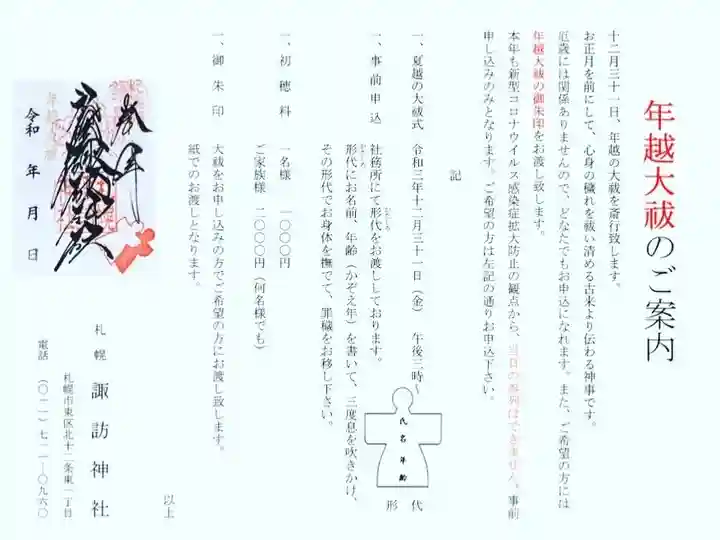 年越大祓のご案内
十二月三十一日、年越の大祓を斎行致します。
お正月を前にして、心身の穢れを祓い清める古来より伝わる神事です。
厄歳には関係ありませんので、どなたでもお申込になれます。また、ご希望の方には
年越大祓の御朱印をお渡し致します。
本年も新型コロナウイルス感染症拡大防止の観点から、当日の参列はできません。事前
申し込みのみとなります。ご希望の方は左記の通りお申込下さい。
記
一、夏越の大祓式 令和三年十二月三十一日(金) 午後三時〜
一、事前申込 社務所にて形代をお渡ししております。
形代にお名前、年齢(かぞえ年)を書いて、三度息を吹きかけ、
その形代でお身体を撫でて、罪穢をお移し下さい。
氏名年齢
形代
一、初穂料 一名様 一〇〇〇円
ご家族様 二〇〇〇円(何名様でも)
一、御朱印 大祓をお申し込みの方でご希望の方にお渡し致します。
紙でのお渡しとなります。
以上
奉拝
令和 年 月 日
札幌 諏訪神社
札幌市東区北十二条東一丁目
電話 (〇一一)七一一―〇九六〇